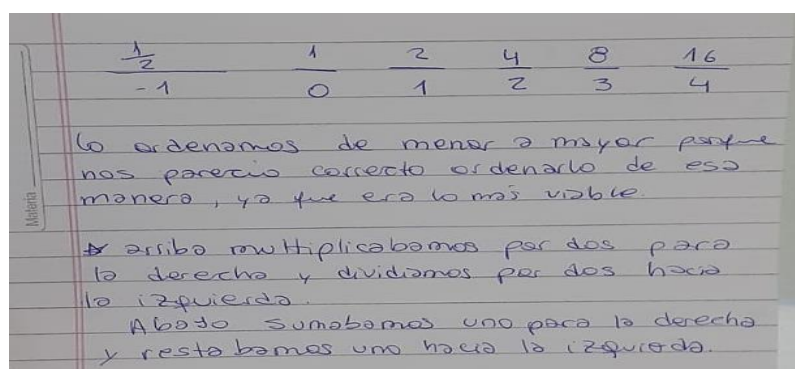 1/2 1 2 4 8 16
-1 0 1 2 3 4
Lo ordenamos de menor a mayor porque
nos parecio correcto ordenarlo de esa
manera, ya que era lo mas viable.
arriba multiplicabamos por dos para
la derecha y dividiamos por dos hacia
la izquierda.
Abajo sumabamos uno para la derecha
y restabamos uno hacia la izquierda.
Materia